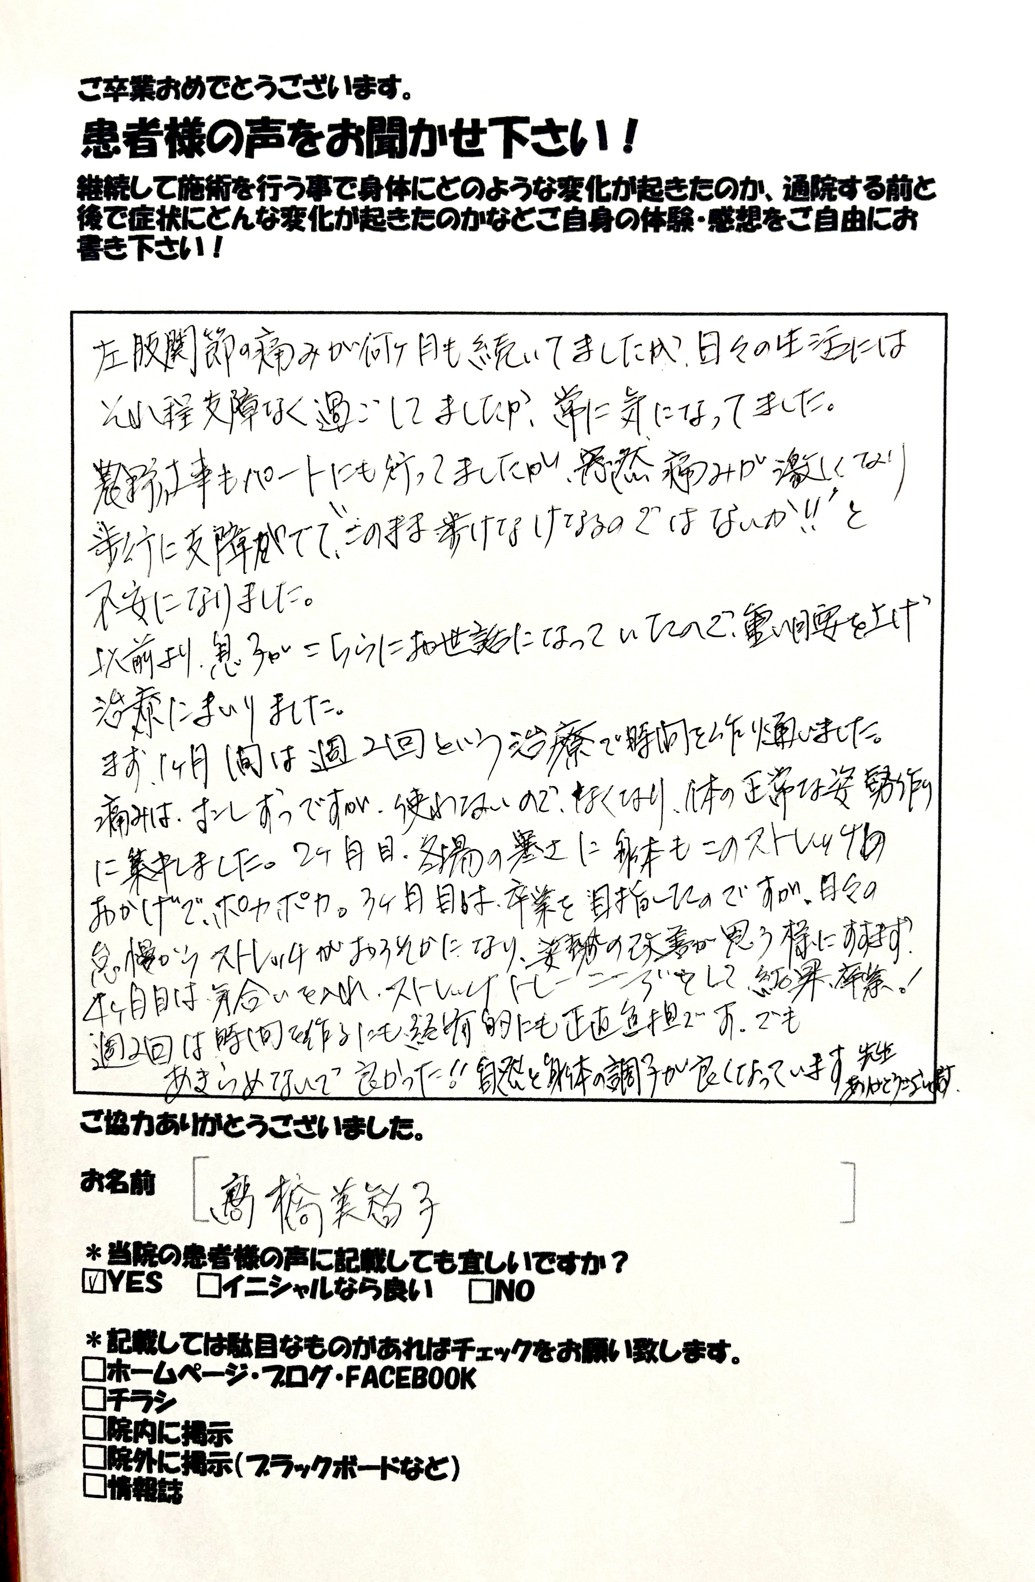 ご卒業おめでとうございます。
患者様の声をお聞かせ下さい！
継続して施術を行う事で身体にどのような変化が起きたのか、通院する前と
後で症状にどんな変化が起きたのかなどご自身の体験・感想をご自由にお
書き下さい！
左股関節の痛みが何ヶ月も続いてましたが、日々の生活には
それ程支障なく過ごしてましたが、常に気になってました。
農野仕事もパートにも行ってましたが、突然痛みが激しくなり
歩行に支障がでて、"このまま歩けなけなるのではないか!!"と
不安になりました。
以前より、息子がこちらにお世話になっていたので、重い腰を上げ
治療にまいりました。
まず、1ヶ月間は週2回という治療で時間を作り通いました。
痛みは、すこしずつですが、使わないので、なくなり、体の正常な姿勢作り
に集中しました。2ヶ月目、冬場の寒さに身体もこのストレッチの
おかげで、ポカポカ。3ヶ月目は、卒業を目指したのですが、日々の
怠慢からストレッチがおろそかになり、姿勢の改善が思う様にすすまず、
4ヶ月目は、気合いを入れ、ストレッチトレーニングをして結果、卒業！
週2回は時間を作るにも経済的にも正直負担です。でも
あきらめないで良かった!!自然と身体の調子が良くなっています 先生
ありがとうございます。
ご協力ありがとうございました。
お名前 [髙橋美智子]
＊当院の患者様の声に記載しても宜しいですか？
☑YES □イニシャルなら良い □NO
＊記載しては駄目なものがあればチェックをお願い致します。
□ホームページ・ブログ・FACEBOOK
□チラシ
□院内に掲示
□院外に掲示（ブラックボードなど）
□情報誌